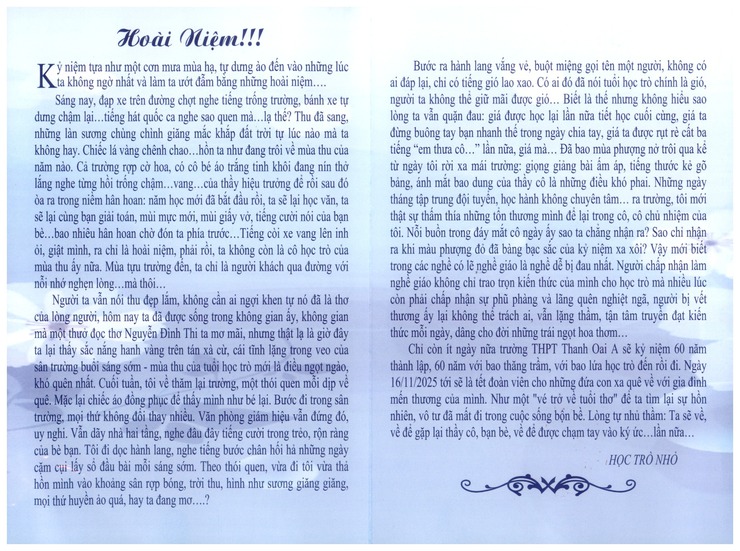 Hoài Niệm!!!
Kỷ niệm tựa như một cơn mưa mùa hạ, tự dưng ào đến vào những lúc
ta không ngờ nhất và làm ta ướt đẫm bằng những hoài niệm….
Sáng nay, đạp xe trên đường chợt nghe tiếng trống trường, bánh xe tự
dưng chậm lại…tiếng hát quốc ca nghe sao quen mà…lạ thế? Thu đã sang,
những làn sương chùng chình giăng mắc khắp đất trời tự lúc nào mà ta
không hay. Chiếc lá vàng chênh chao…hồn ta như đang trôi về mùa thu của
năm nào. Cả trường rợp cờ hoa, có cô bé áo trắng tinh khôi đang nín thở
lắng nghe từng hồi trống chậm…vang…của thầy hiệu trưởng để rồi sau đó
òa ra trong niềm hân hoan: năm học mới đã bắt đầu rồi, ta sẽ lại học văn, ta
sẽ lại cùng bạn giải toán, mùi mực mới, mùi giấy vở, tiếng cười nói của bạn
bè…bao nhiêu hân hoan chờ đón ta phía trước…Tiếng còi xe vang lên inh
ỏi, giật mình, ra chỉ là hoài niệm, phải rồi, ta không còn là cô học trò của
mùa thu ấy nữa. Mùa tựu trường đến, ta chỉ là người khách qua đường với
nỗi nhớ nghẹn lòng…mà thôi…
Người ta vẫn nói thu đẹp lắm, không cần ai ngợi khen tự nó đã là thơ
của lòng người, hôm nay ta đã được sống trong không gian ấy, không gian
mà một thuở đọc thơ Nguyễn Đình Thi ta mơ mãi, nhưng thật lạ là giờ đây
ta lại thấy sắc nắng hanh vàng trên tán xà cừ, cái tĩnh lặng trong veo của
sân trường buổi sáng sớm - mùa thu của tuổi học trò mới là điều ngọt ngào,
khó quên nhất. Cuối tuần, tôi về thăm lại trường, một thói quen mỗi dịp về
quê. Mặc lại chiếc áo đồng phục để thấy mình như bé lại. Bước đi trong sân
trường, mọi thứ không đổi thay nhiều. Văn phòng giám hiệu vẫn đứng đó,
uy nghi. Vẫn dãy nhà hai tầng, nghe đâu đây tiếng cười trong trẻo, rộn ràng
của bè bạn. Tôi đi dọc hành lang, nghe tiếng bước chân hối hả những ngày
cặm cụi lấy sổ đầu bài mỗi sáng sớm. Theo thói quen, vừa đi tôi vừa thả
hồn mình vào khoảng sân rợp bóng, trời thu, hình như sương giăng giăng,
mọi thứ huyền ảo quá, hay ta đang mơ….?
Bước ra hành lang vắng vẻ, buột miệng gọi tên một người, không có
ai đáp lại, chỉ có tiếng gió lao xao. Có ai đó đã nói tuổi học trò chính là gió,
người ta không thể giữ mãi được gió… Biết là thế nhưng không hiểu sao
lòng ta vẫn quặn đau: giá được học lại lần nữa tiết học cuối cùng, giá ta
đừng buông tay bạn nhanh thế trong ngày chia tay, giá ta được rụt rè cất ba
tiếng “em thưa cô…” lần nữa, giá mà… Đã bao mùa phượng nở trôi qua kể
từ ngày tôi rời xa mái trường: giọng giảng bài ấm áp, tiếng thước kẻ gõ
bảng, ánh mắt bao dung của thầy cô là những điều khó phai. Những ngày
tháng tập trung đội tuyển, học hành không chuyên tâm… ra trường, tôi mới
thật sự thấm thía những tổn thương mình để lại trong cô, cô chủ nhiệm của
tôi. Nỗi buồn trong đáy mắt cô ngày ấy sao ta chẳng nhận ra? Sao chỉ nhận
ra khi màu phượng đỏ đã bảng bạc sắc của kỷ niệm xa xôi? Vậy mới biết
trong các nghề có lẽ nghề giáo là nghề dễ bị đau nhất. Người chấp nhận làm
nghề giáo không chỉ trao trọn kiến thức của mình cho học trò mà nhiều lúc
còn phải chấp nhận sự phũ phàng và lãng quên nghiệt ngã, người bị vết
thương ấy lại không thể trách ai, vẫn lặng thầm, tận tâm truyền đạt kiến
thức mỗi ngày, dâng cho đời những trái ngọt hoa thơm…
Chỉ còn ít ngày nữa trường THPT Thanh Oai A sẽ kỷ niệm 60 năm
thành lập, 60 năm với bao thăng trầm, với bao lứa học trò đến rồi đi. Ngày
16/11/2025 tới sẽ là tết đoàn viên cho những đứa con xa quê về với gia đình
mến thương của mình. Như một "vé trở về tuổi thơ" để ta tìm lại sự hồn
nhiên, vô tư đã mất đi trong cuộc sống bộn bề. Lòng tự nhủ thầm: Ta sẽ về,
về để gặp lại thầy cô, bạn bè, về để được chạm tay vào ký ức…lần nữa…
HỌC TRÒ NHỎ